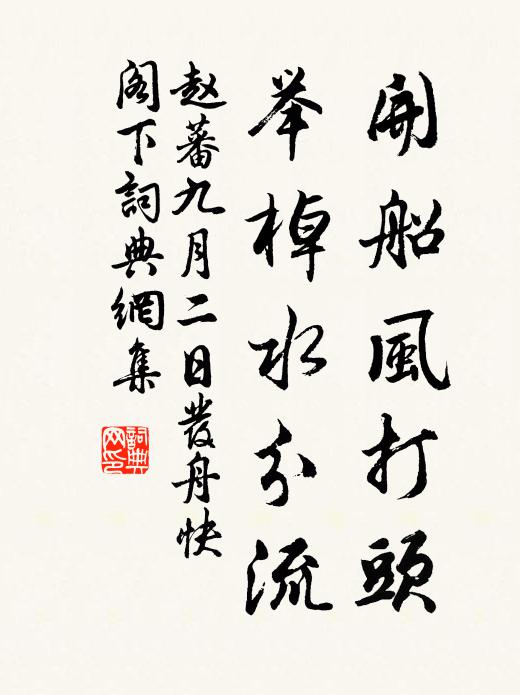 開船風打頭
举棹水分流
赵蕃九月二日發舟快
阁下詞典網集
詞典
网印